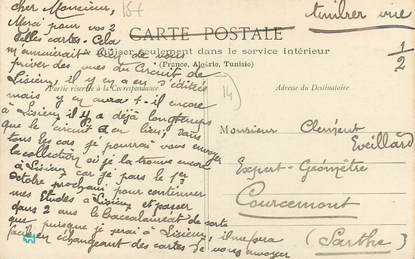 cher Monsieur,
Merci pour vos 2
belles cartes. Cela
m'ennuierait bien de vous
priver des vues du Circuit de
Lisieux, il y en a en d'édités
mais y en aura t-il encore
à Lisieux il y a déjà longtemps
que le circuit a eu lieu; dans
tous les cas je pourrai vous envoyer
la collection si je la trouve encore
à Lisieux car je pars le 1er
Octobre prochain pour continuer
mes Etudes à Lisieux et passer
dans 2 ans le Baccalauréat de sorte
que puisque je serai à Lisieux, il me sera
facile en échangeant des cartes de vous envoyer
184
timbrer vue
CARTE POSTALE
utiliser seulement dans le service intérieur
(France, Algérie, Tunisie)
Partie réservée à la Correspondance
Adresse du Destinataire
1/2
14
Monsieur Clément
Eveillard
Expert-Géomètre
Courcemont
(Sarthe)